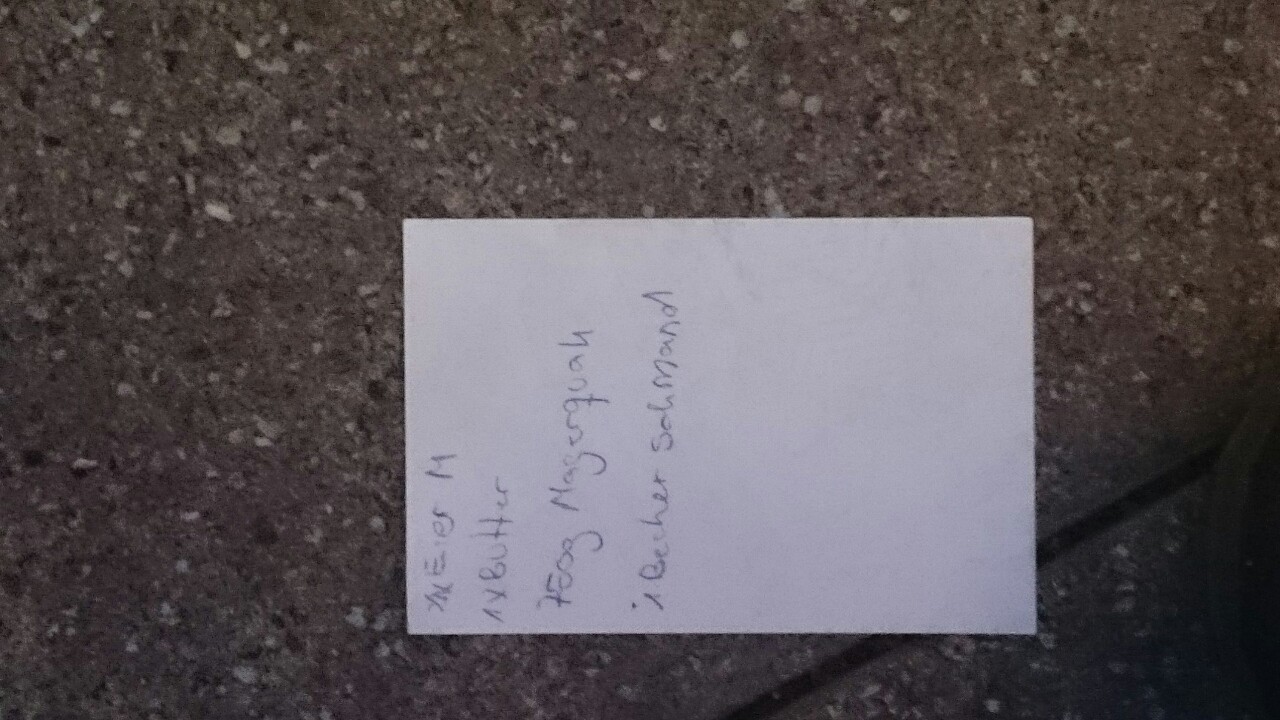 1x Eier M
1x Butter
750g Magerquak
1 Becher Sahmand